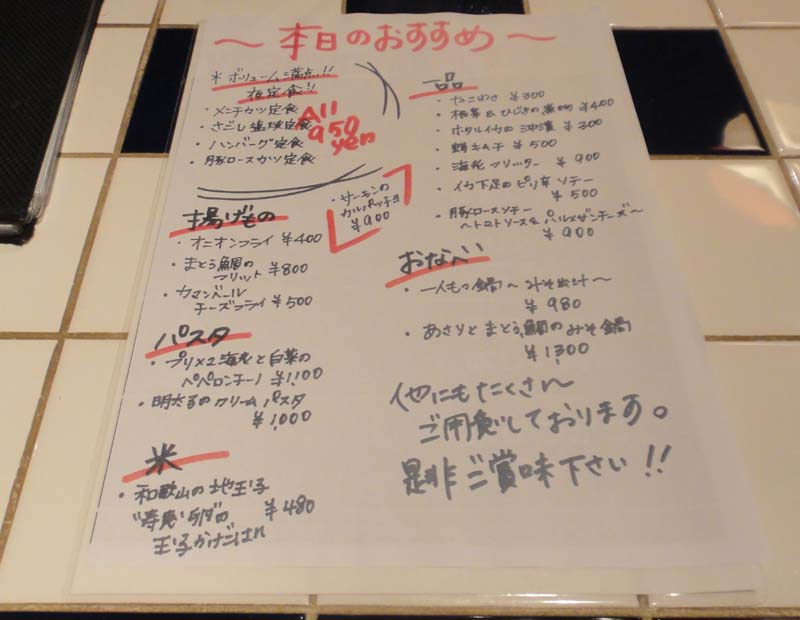 ～本日のおすすめ～
＊ボリューム満点!!
夜定食!!
・メンチカツ定食
・さごし塩焼定食
・ハンバーグ定食
・豚ロースカツ定食
All
950
yen
・サーモンの
カルパッチョ
¥900
揚げもの
・オニオンフライ ¥400
・まとう鯛の
フリット ¥800
・カマンベール
チーズフライ ¥500
パスタ
・プリ×2海老と白菜の
ペペロンチーノ ¥1,100
・明太子のクリームパスタ
¥1,000
米
・和歌山の地玉子
¥480
玉子かけごはん
一品
・たこわさ ¥300
・根菜とひじきの煮物 ¥400
・ホタルイカの沖漬 ¥300
・鮮キムチ ¥500
・海老フリッター ¥900
・イカ下足のピリ辛ソテー
¥500
・豚ロースソテー
～トマトソース&パルメザンチーズ～
¥900
おなべ
・一人もつ鍋～みそ出汁～
¥980
・あさりとまとう鯛のみそ鍋
¥1,300
他にもたくさん
ご用意しております。
是非ご賞味下さい!!